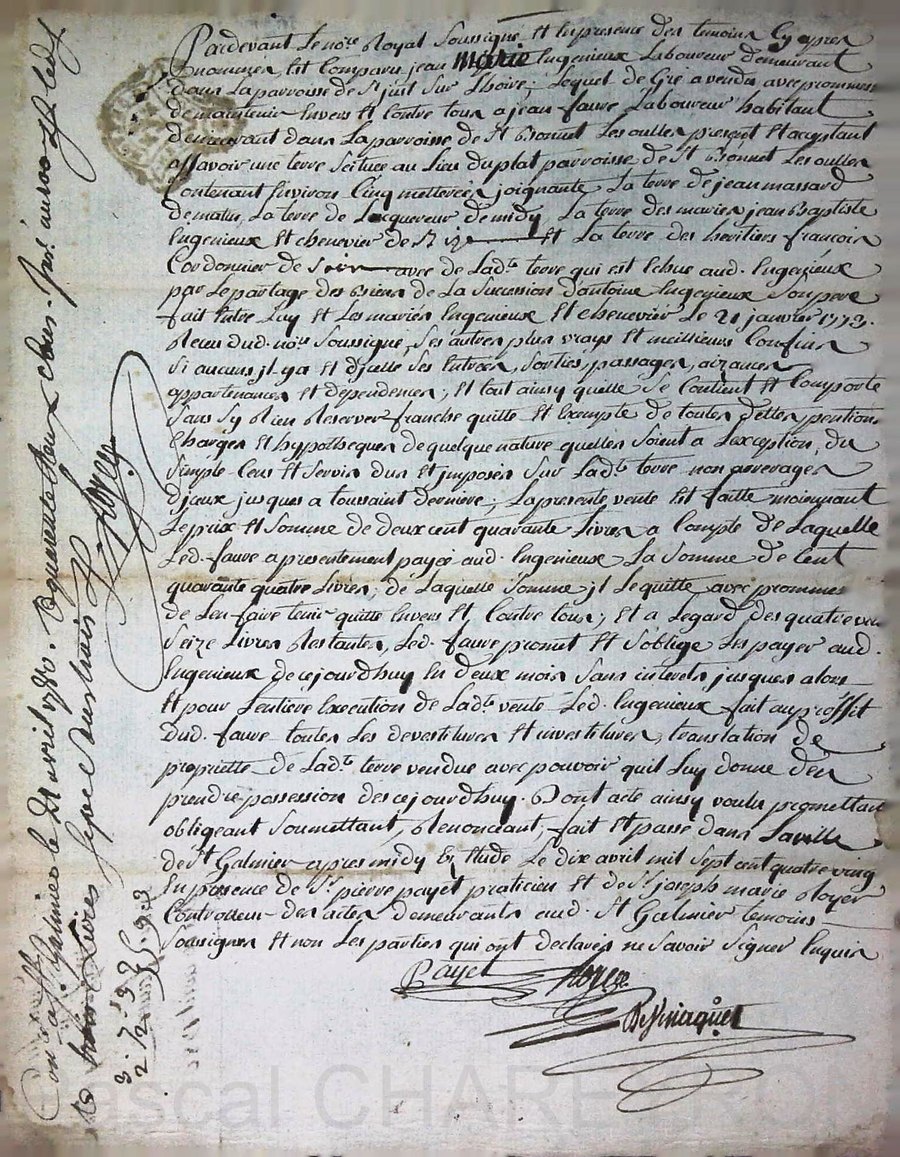 Pardevant Le no.re Royal Soussigné, Et En presence des temoins Cy apres
Nommez, Est Comparu jean marie Ingenieux Laboureur demeurant
dans La parroisse de St just Sur Lhoire; Lequel de Gre a vendu avec prommesse
de maintenir Envers Et Contre tous a jean faure Laboureur habitant
demeurant dans La parroisse de St Bonnet Les oulles present Et acceptant
assavoir une terre Scituée au Lieu du plat parroisse de St Bonnet Les oulles
Contenant Environ Cinq metterées, joignante La terre de jean massard
de matin, La terre de Lacquereur de midy, La terre des mariés jean Baptiste
Ingenieux Et chenevier de Et La terre des heritiers françois
Cordonnier de Soir avec de Lad.te terre qui est Echue aud. Ingenieux
par Le partage des Biens de La Succession dantoine Ingenieux Son pere
fait Entre Luy Et Les mariés Ingenieux Et chenevier Le 21 janvier 1773.
Receu dud. no.re Soussigné, Ses autres plus vrays Et meilleurs Confins
Si aucuns jl ya Et djcelle Ses Entrées, Sorties, passages, aizances
appartenances Et dependences; Et tout ainsy quelle Se Contient Et Comporte
Sans Sy Rien Reserver franche quitte Et Exempte de toutes dettes, pentions
Charges Et hypotheques de quelque nature quelles Soient a Lexception du
Simple Cens Et Servis dus Et jmposés Sur Lad.te terre non arrerages
djceux jusques a toussaint derniere; La presente vente Est faitte moiennant
Le prix Et Somme de deux cent quarante Livres a Compte de Laquelle
Led. faure a presentement payée aud. Ingenieux La Somme de Cent
quarante quatre Livres, de Laquelle Somme jl Le quitte avec prommesse
de Len faire tenir quitte Envers Et Contre tous; Et a Legard des quatre vingt
Seize Livres Restantes, Led. faure promet Et S'oblige Les payer aud.
Ingenieux de cejourdhuy En deux mois Sans interets jusques alors
Et pour Lentiere Execution de Lad.te vente Led. Ingenieux fait au proffit
dud. faure toutes Les devestitures Et investitures, translation de
propriette de Lad.te terre vendue avec pouvoir quil Luy donne den
prendre possession des cejourdhuy. Dont acte ainsy voulu promettant
obligeant Soumettant, Renoncant, fait Et passé dans La ville
de St Galmier apres midy Etude Le dix avril mil Sept cent quatre ving
En presence de Sr. pierre payet praticien Et de Sr. joseph marie Royer
Controlleur des actes demeurants aud. St Galmier temoins
Soussignés Et non Les parties qui ont declarés ne Savoir Signer Enquis
Payet Royer
Controllé a St Galmier le 21 avril 1780. 
trois Livres
Royer
Pascal CHARETRON